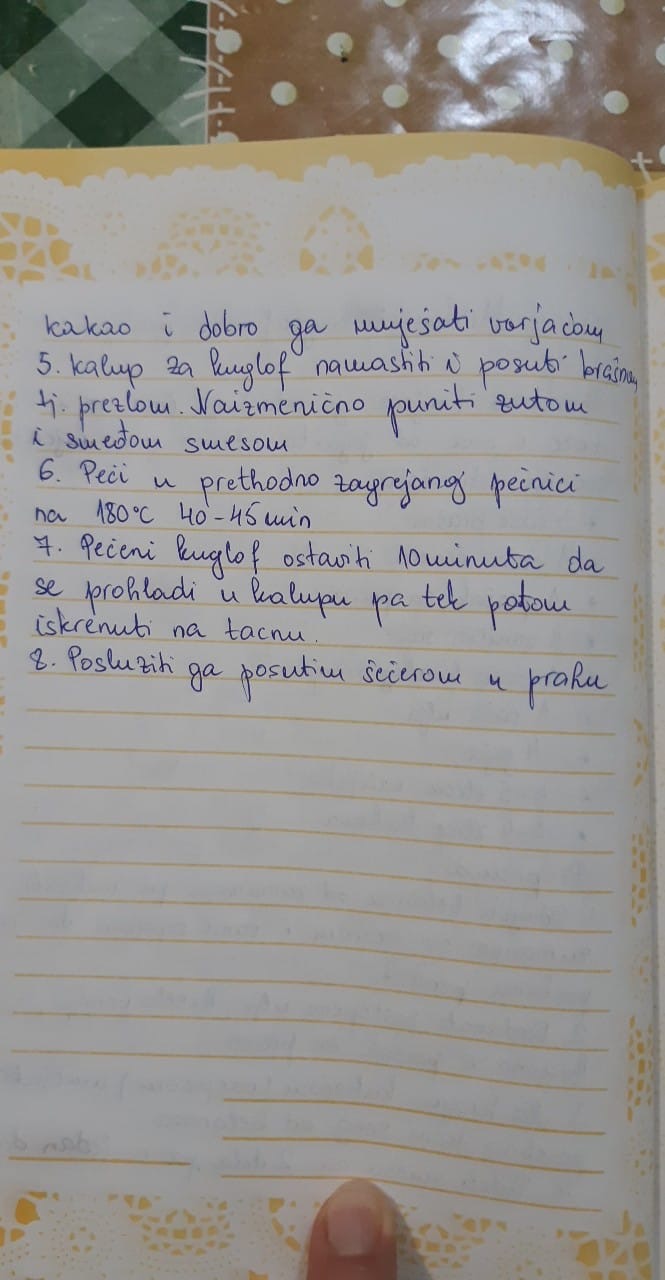 kakao i dobro ga umješati varjačom
5. Kalup za kuglof namastiti i posuti brašnom
tj. prezlom. Naizmenično puniti žutom
i smeđom smesom
6. Peći u prethodno zagrejanoj pećnici
na 180°C 40-45 min
7. Pečeni kuglof ostaviti 10 minuta da
se prohladi u kalupu pa tek potom
iskrenuti na tacnu.
8. Poslužiti ga posutim šećerom u prahu